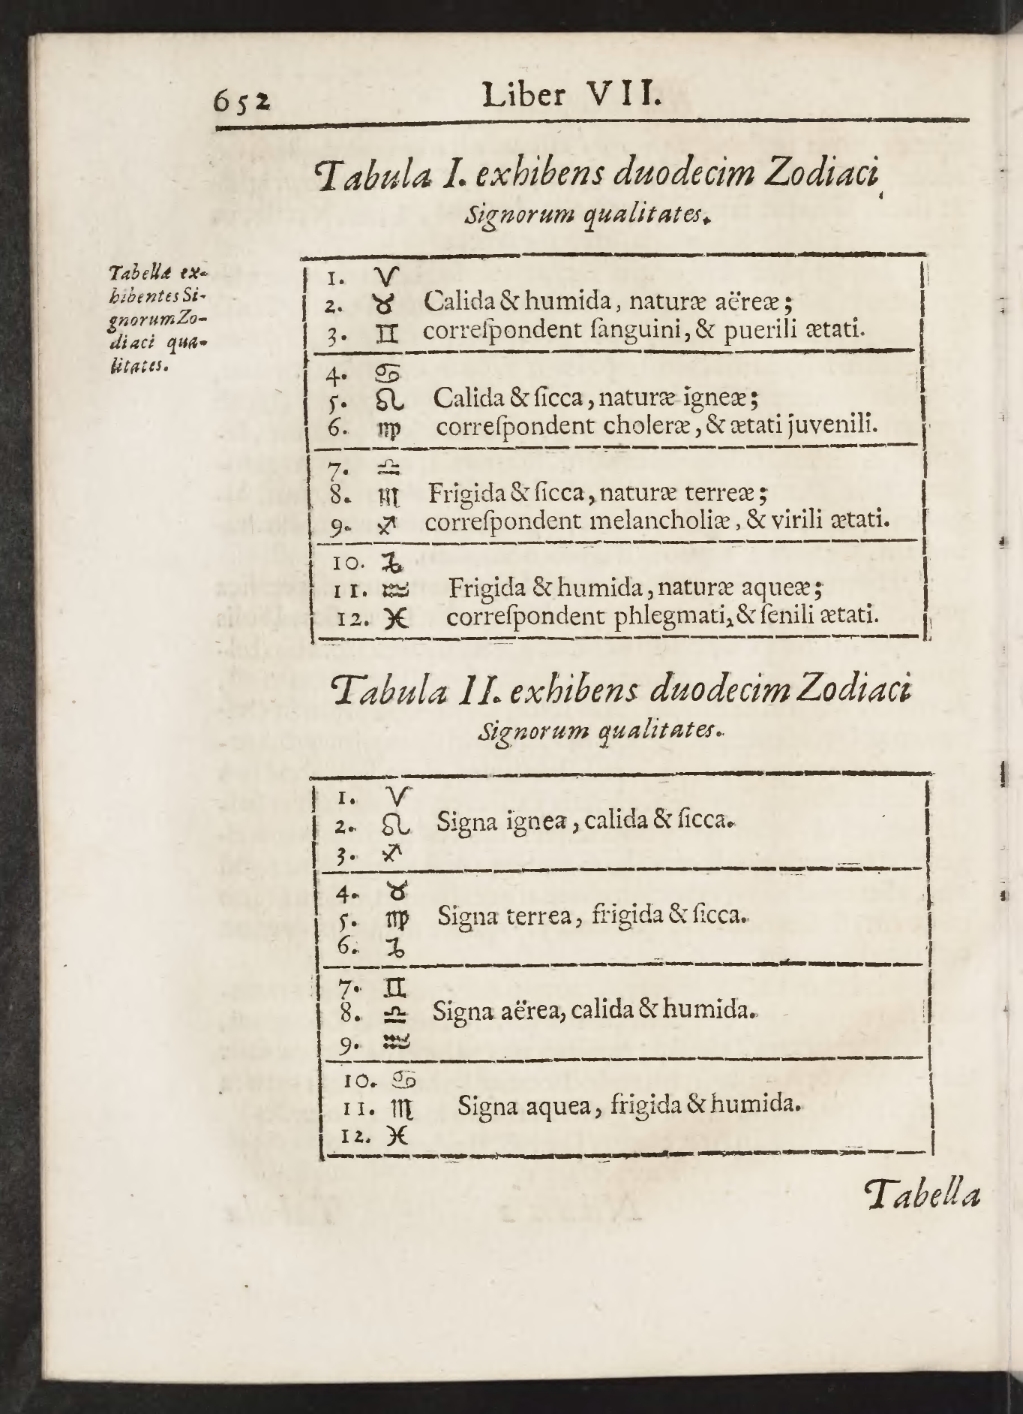 652 Liber VII.
Tabula I. exhibens duodecim Zodiaci
Signorum qualitates.
Tabellæ ex-
hibentes Si-
gnorum Zo-
diaci qua-
litates.
1. ♈
2. ♉ Calida & humida, naturæ aëreæ;
3. ♊ correſpondent ſanguini, & puerili ætati.
4. ♋
5. ♌ Calida & ſicca, naturæ igneæ;
6. ♍ correſpondent choleræ, & ætati juvenili.
7. ♎
8. ♏ Frigida & ſicca, naturæ terreæ;
9. ♐ correſpondent melancholiæ, & virili ætati.
10. ♑
11. ♒ Frigida & humida, naturæ aqueæ;
12. ♓ correſpondent phlegmati, & ſenili ætati.
Tabula II. exhibens duodecim Zodiaci
Signorum qualitates.
1. ♈
2. ♌ Signa ignea, calida & ſicca.
3. ♐
4. ♉
5. ♍ Signa terrea, frigida & ſicca.
6. ♑
7. ♊
8. ♎ Signa aërea, calida & humida.
9. ♒
10. ♋
11. ♏ Signa aquea, frigida & humida.
12. ♓
Tabella